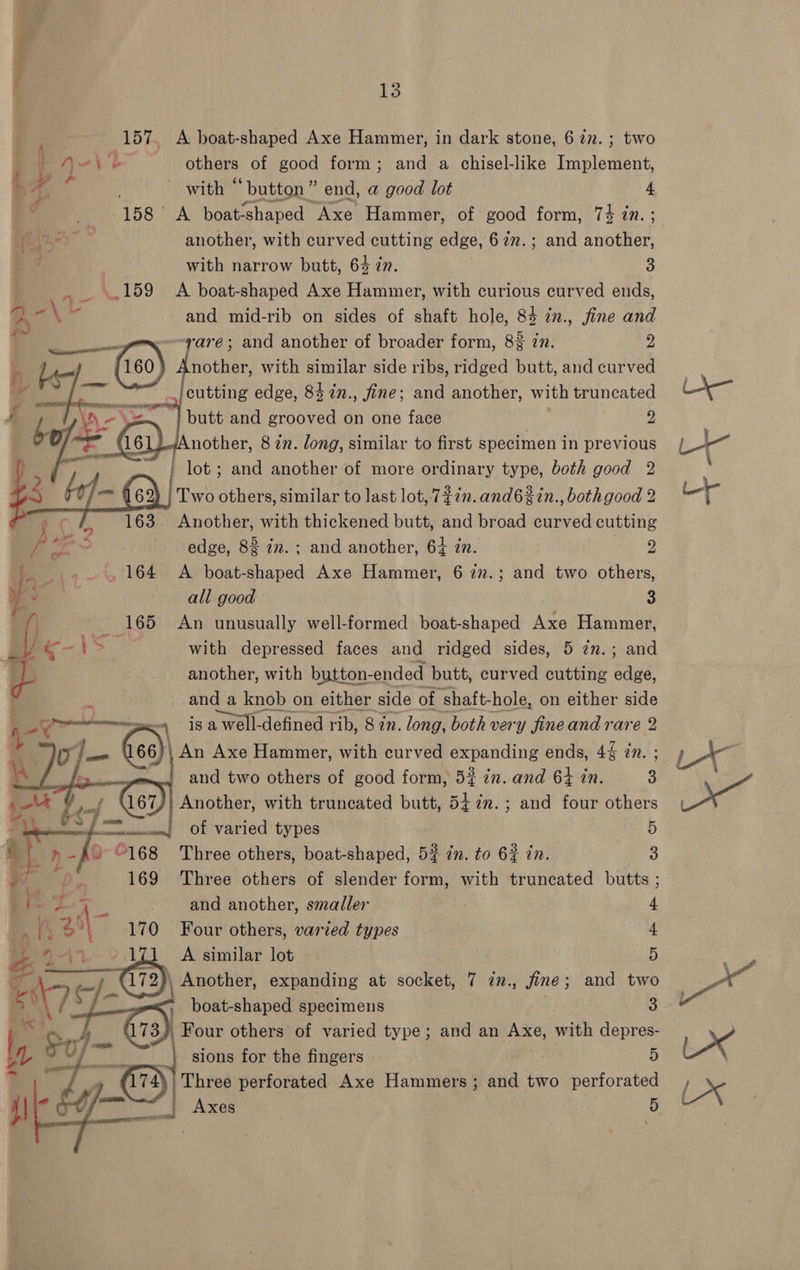 13
157. A boat-shaped Axe Hammer, in dark stone, 6 in. ; two
others of good form ; and a chisel-like Implement,
with “button” end, a good lot 4
158 A boat-shaped Axe Hammer, of good form, 7½ in. ;
another, with curved cutting edge, 6 in. ; and another,
with narrow butt, 6½ in. 3
159 A boat-shaped Axe Hammer, with curious curved ends,
and mid-rib on sides of shaft hole, 8½ in., fine and
rare ; and another of broader form, 8⅜ in. 2
160 Another, with similar side ribs, ridged butt, and curved
cutting edge, 8½ in., fine; and another, with truncated
butt and grooved on one face 2
161 Another, 8 in. long, similar to first specimen in previous
lot ; and another of more ordinary type, both good 2
162 Two others, similar to last lot, 7¾ in. and 6⅜ in., both good 2
163 Another, with thickened butt, and broad curved cutting
edge, 8⅜ in. ; and another, 6¼ in. 2
164 A boat-shaped Axe Hammer, 6 in. ; and two others,
all good 3
165 An unusually well-formed boat-shaped Axe Hammer,
with depressed faces and ridged sides, 5 in. ; and
another, with button-ended butt, curved cutting edge,
and a knob on either side of shaft-hole, on either side
is a well-defined rib, 8 in. long, both very fine and rare 2
166 An Axe Hammer, with curved expanding ends, 4⅝ in. ;
and two others of good form, 5¾ in. and 6¼ in. 3
167 Another, with truncated butt, 5½ in. ; and four others
of varied types 5
168 Three others, boat-shaped, 5¾ in. to 6¾ in. 3
169 Three others of slender form, with truncated butts ;
and another, smaller 4
170 Four others, varied types 4
171 A similar lot 5
172 Another, expanding at socket, 7 in., fine; and two
boat-shaped specimens 3
173 Four others of varied type ; and an Axe, with depres-
sions for the fingers 5
174 Three perforated Axe Hammers ; and two perforated
Axes 5